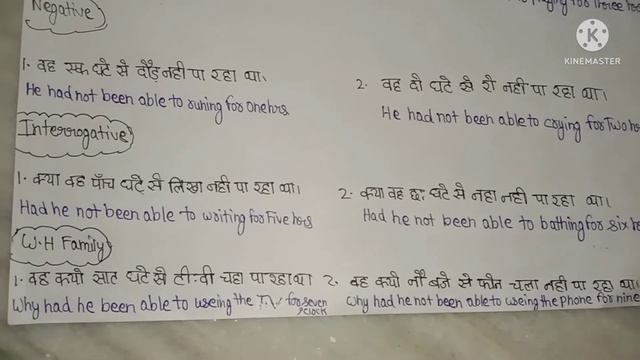 Negative
1. वह एक घंटे से दौड़ नही पा रहा था।
He had not been able to runing for one hrs
2. वह दो घंटे से रो नही पा रहा था।
He had not been able to crying for Two
Interrogative
1. क्या वह पाँच घंटे से लिख नही पा रहा था।
Had he not been able to writing for Five hrs
2. क्या वह छः घंटे से नहा नही पा रहा था।
Had he not been able to bathing for six
W.H Family
1. वह क्यो सात घंटे से टी.वी पा रहा था
Why had he been able to useing the T.V for seven
2. वह क्यो नौ बजे से फोन चला नही पा रहा था।
Why had he not been able to useing the phone for nine
KINEMASTER